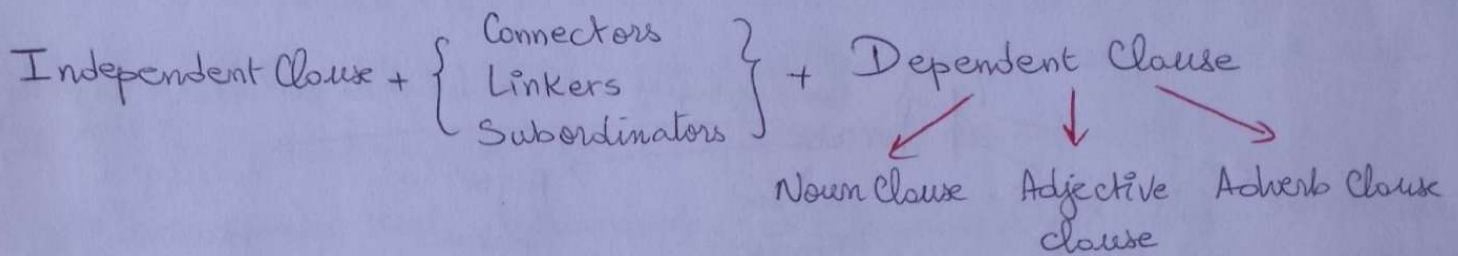 Independent Clause + { Connectors
Linkers
Subordinators } + Dependent Clause
Noun Clause Adjective clause Adverb Clause